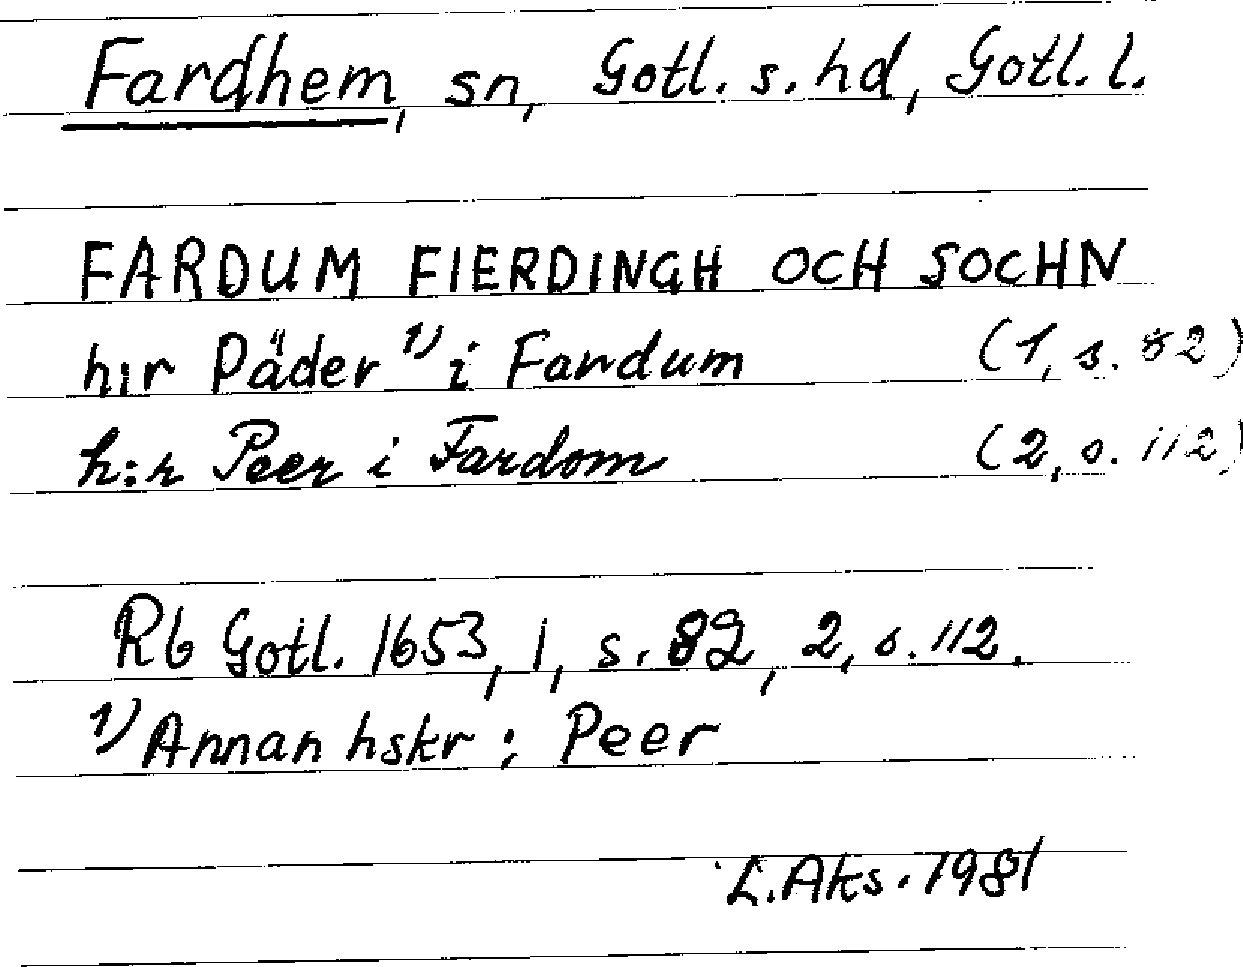 Fardhem, sn, Gotl. s. hd, Gotl. l.
FARDUM FIERDINGH OCH SOCHN
h:r Päder 1) i Fardum (1, s. 82)
h:r Peer i Fardom (2, s. 112)
Rb Gotl. 1653, 1, s. 82, 2, s. 112.
1) Annan hskr: Peer
L. Aks. 1981